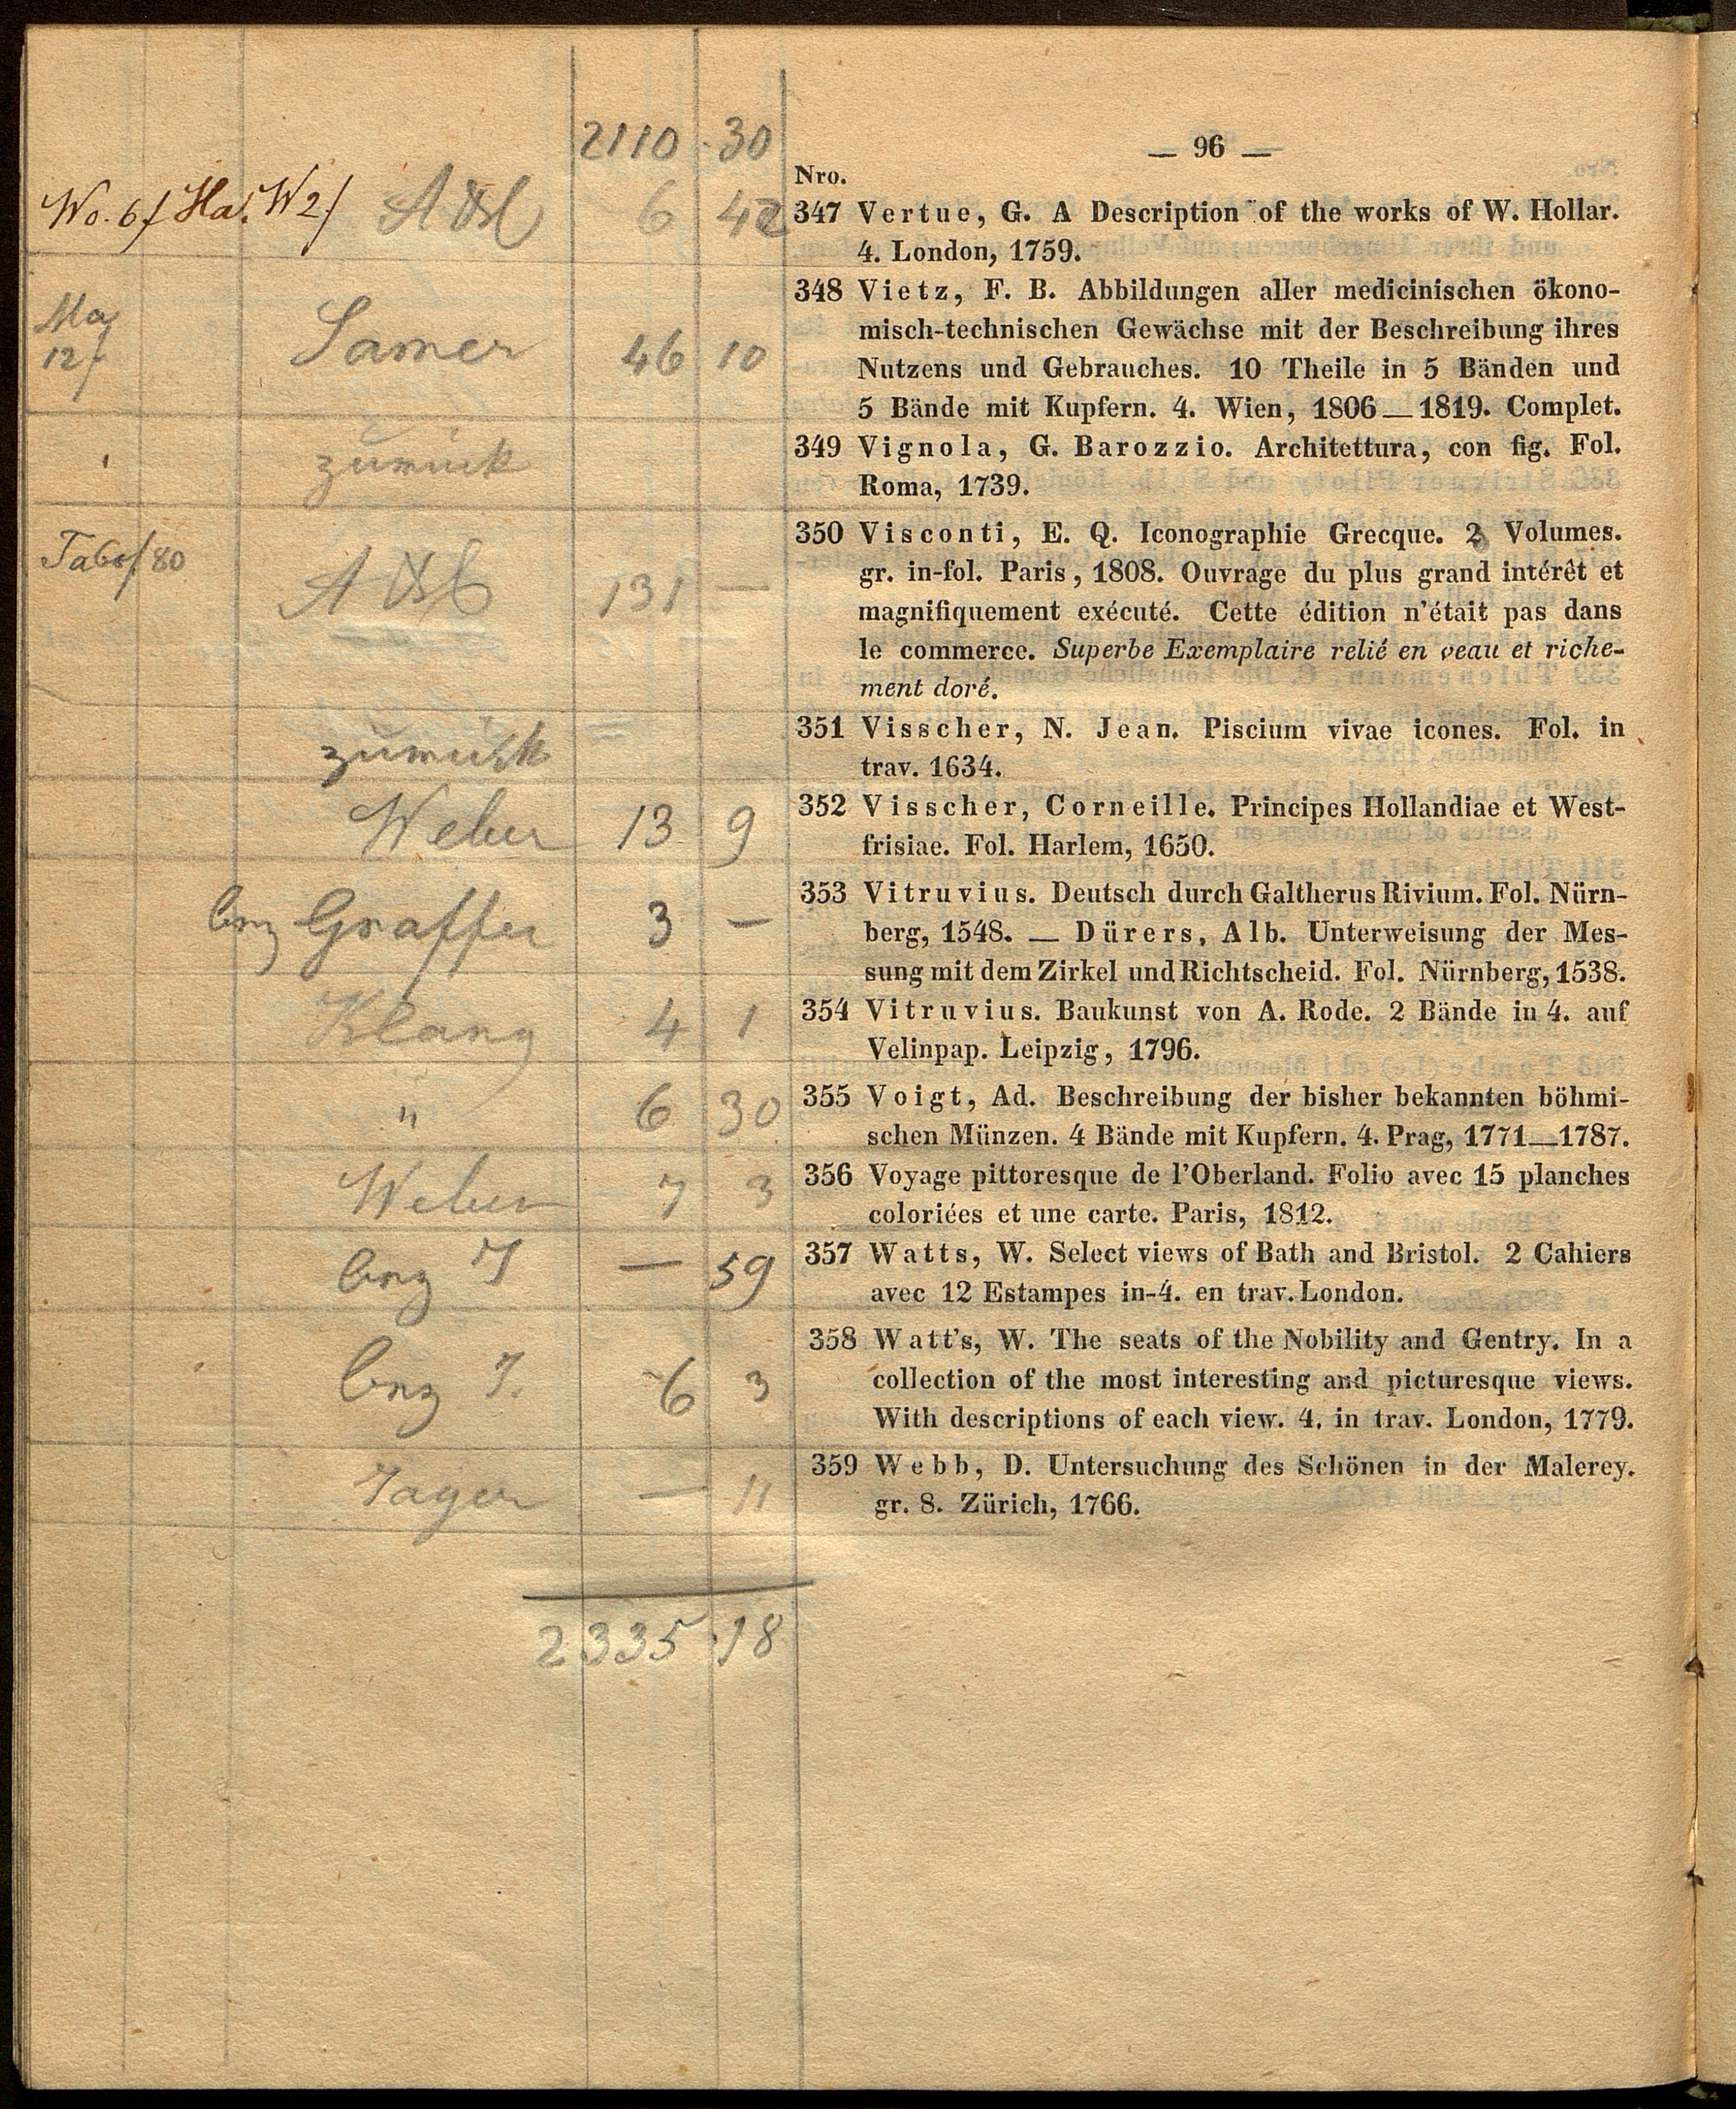 2110 30
— 96 —
Nro.
Wo. 6f Ha. W2f 6 42
347 Vertue, G. A Description of the works of W. Hollar.
4. London, 1759.
Ma
12f
Samer 46 10
348 Vietz, F. B. Abbildungen aller medicinischen ökono-
misch-technischen Gewächse mit der Beschreibung ihres
Nutzens und Gebrauches. 10 Theile in 5 Bänden und
5 Bände mit Kupfern. 4. Wien, 1806—1819. Complet.
zurück
349 Vignola, G. Barozzio. Architettura, con fig. Fol.
Roma, 1739.
80
131 —
350 Visconti, E. Q. Iconographie Grecque. 2 Volumes.
gr. in-fol. Paris, 1808. Ouvrage du plus grand intérêt et
magnifiquement exécuté. Cette édition n'était pas dans
le commerce. Superbe Exemplaire relié en veau et riche-
ment doré.
zurück
351 Visscher, N. Jean. Piscium vivae icones. Fol. in
trav. 1634.
Weber 13 9
352 Visscher, Corneille. Principes Hollandiae et West-
frisiae. Fol. Harlem, 1650.
Graffer 3 —
353 Vitruvius. Deutsch durch Galtherus Rivium. Fol. Nürn-
berg, 1548. — Dürers, Alb. Unterweisung der Mes-
sung mit dem Zirkel und Richtscheid. Fol. Nürnberg, 1538.
Klang 4 1
354 Vitruvius. Baukunst von A. Rode. 2 Bände in 4. auf
Velinpap. Leipzig, 1796.
" 6 30
355 Voigt, Ad. Beschreibung der bisher bekannten böhmi-
schen Münzen. 4 Bände mit Kupfern. 4. Prag, 1771—1787.
Weber 7 3
356 Voyage pittoresque de l'Oberland. Folio avec 15 planches
coloriées et une carte. Paris, 1812.
— 59
357 Watts, W. Select views of Bath and Bristol. 2 Cahiers
avec 12 Estampes in-4. en trav. London.
6 3
358 Watt's, W. The seats of the Nobility and Gentry. In a
collection of the most interesting and picturesque views.
With descriptions of each view. 4. in trav. London, 1779.
Jager — 11
359 Webb, D. Untersuchung des Schönen in der Malerey.
gr. 8. Zürich, 1766.
2335 18